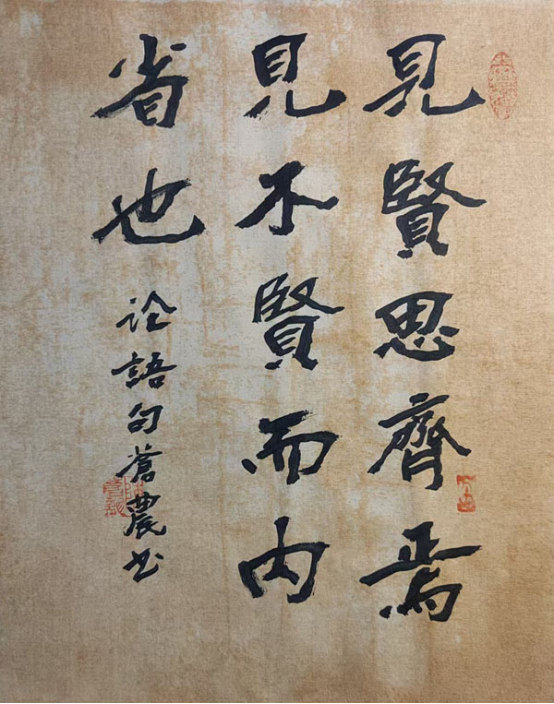 見賢思齊焉
見不賢而内
省也
論語句蒼農书